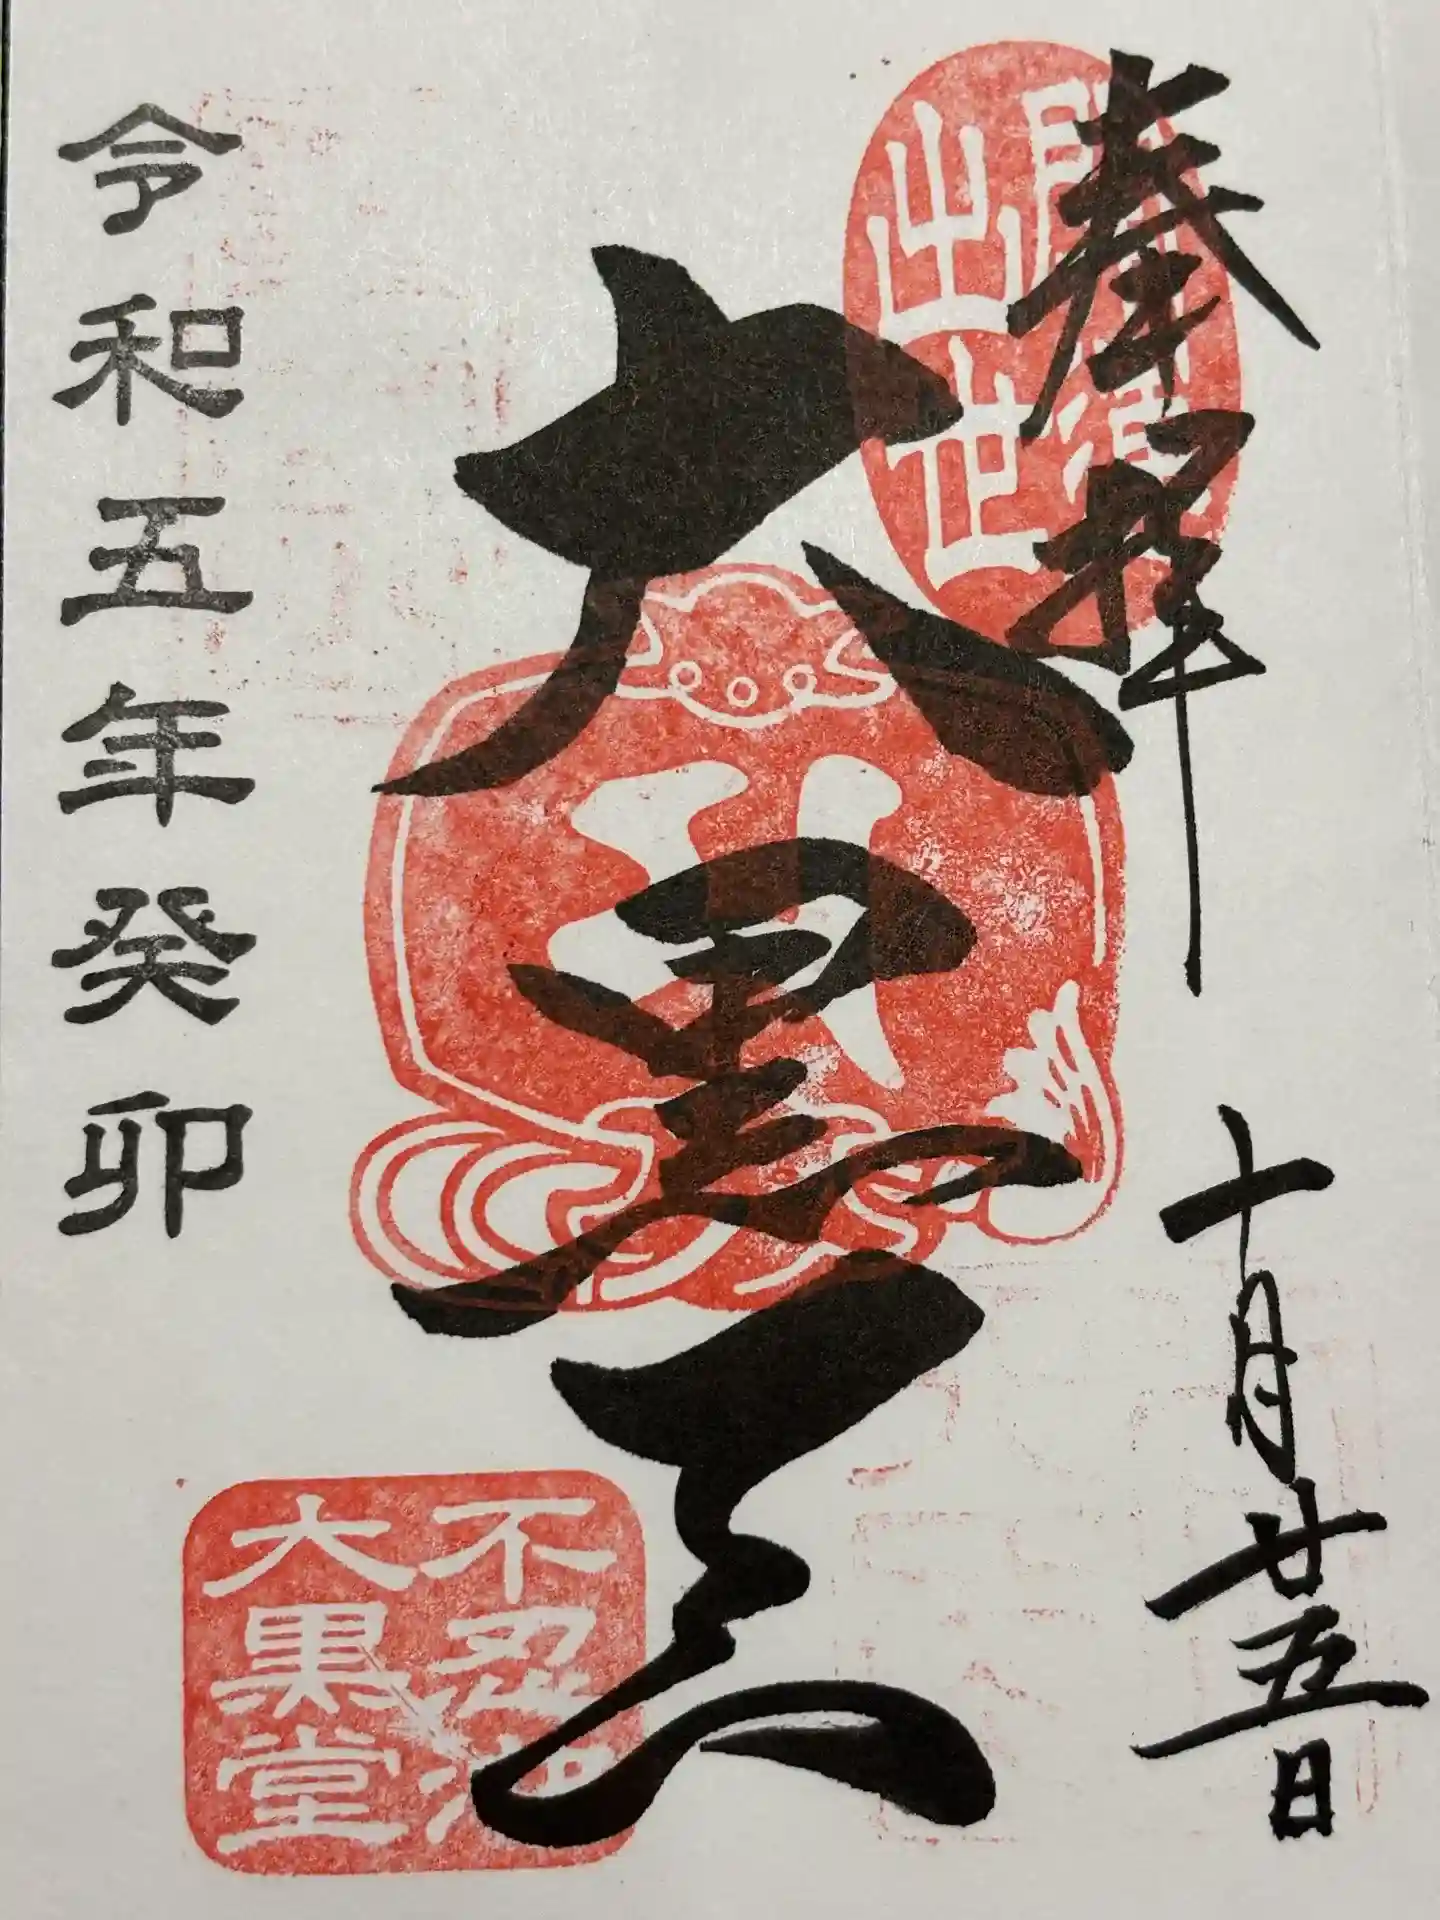 奉拝
十月廿五日
大黒天
令和五年癸卯
出世
不忍池
大黒堂